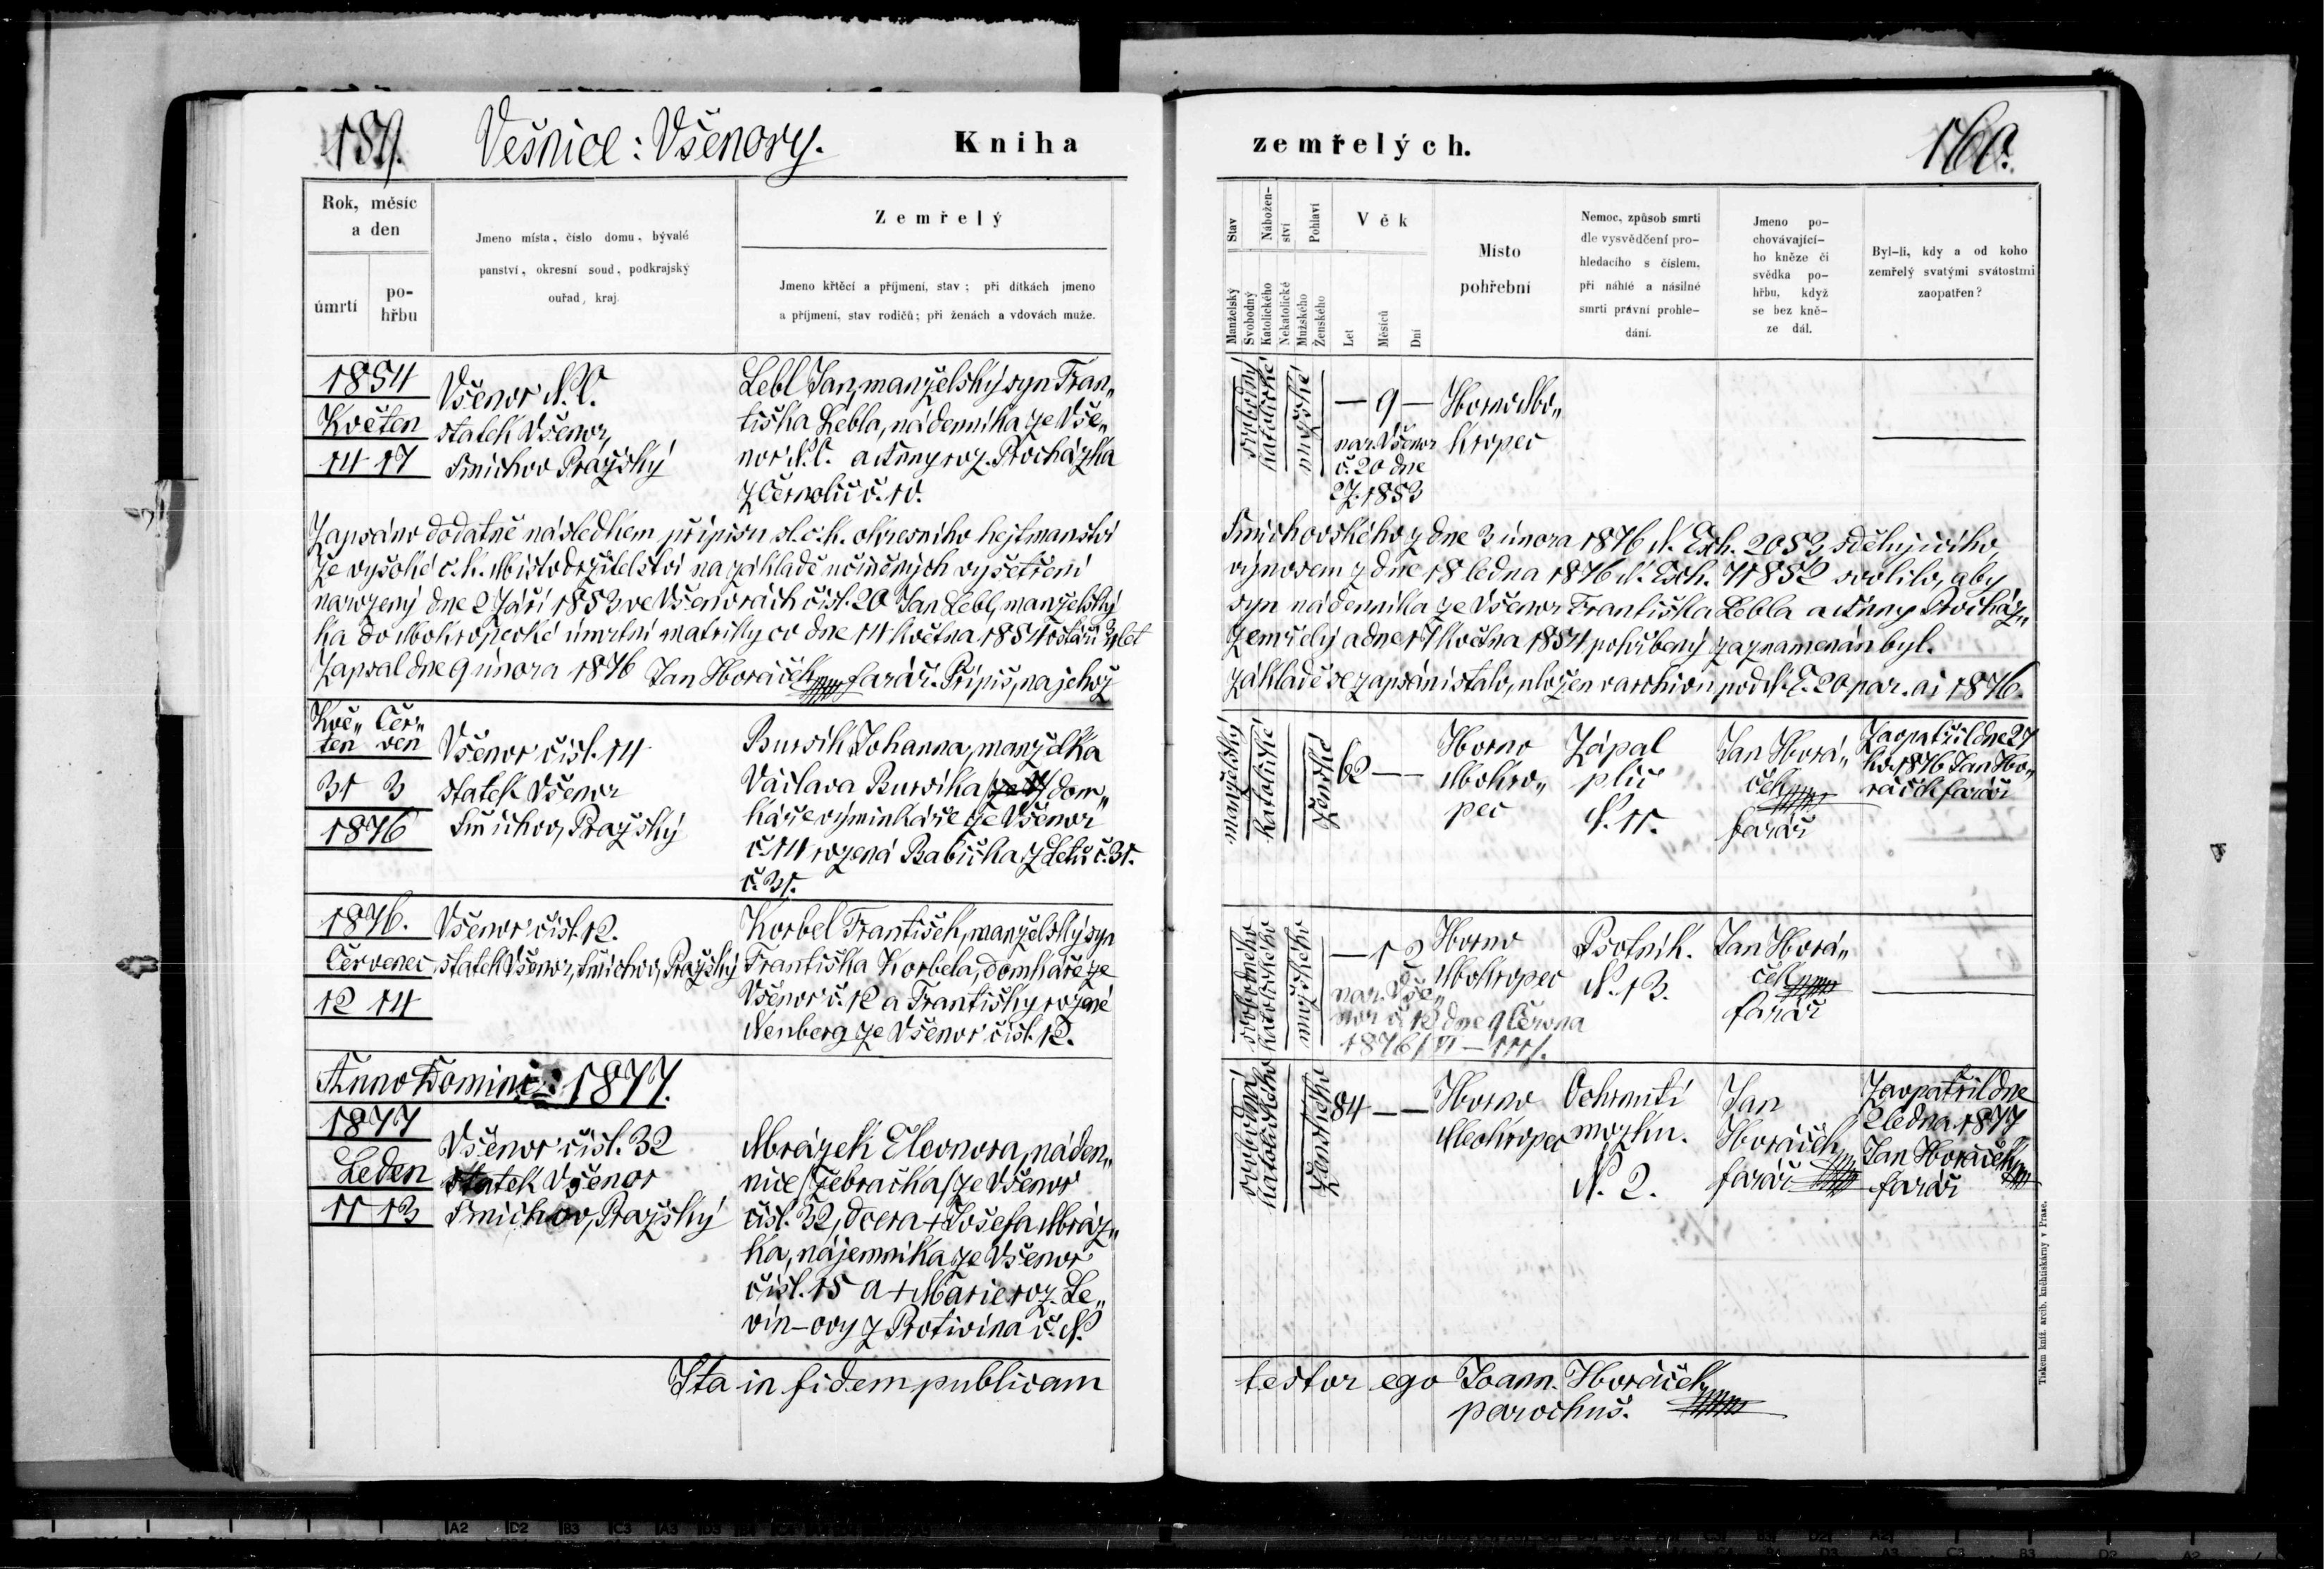 159.
Vesnice: Všenory.
Kniha
zemřelých.
160.
Rok, měsíc
a den
úmrtí
po-
hřbu
Jmeno místa, číslo domu, bývalé
panství, okresní soud, podkrajský
ouřad, kraj.
Zemřelý
Jmeno křtěcí a příjmení, stav; při dítkách jmeno
a příjmení, stav rodičů; při ženách a vdovách muže.
Stav
Nábožen-
ství
Pohlaví
Manželský
Svobodný
Katolického
Nekatolické
Mužského
Ženského
Věk
Let
Měsíců
Dní
Místo
pohřební
Nemoc, způsob smrti
dle vysvědčení pro-
hledacího s číslem,
při náhlé a násilné
smrti právní prohle-
dání.
Jmeno po-
chovávající-
ho kněze či
svědka po-
hřbu, když
se bez kně-
ze dál.
Byl-li, kdy a od koho
zemřelý svatými svátostmi
zaopatřen?
1854
Květen
14 17
Všenor N.C.
statek Všenor,
Smichov Pražský
Lebl Jan, manželský syn Fran„
tiška Lebla, nádenníka ze Vše„
nor N.C. a Anny roz. Procházka
z Černolič č. 10.
svobodný
katolické
mužské
— 9 —
nar. Všenor
č. 20 dne
2/9. 1853
Horno Mo„
kropec
Zapsáno dodatně následkem připisu sl. c.k. okresního hejtmanství
Smichovského z dne 3 února 1876 N. Exh. 2053, sdělujícího,
že vysoké c.k. Místodržitelství na základě učiněných vyšetření
výnosem z dne 18 ledna 1876 N. Exh. 71852 svolilo, aby
narozený dne 2 Září 1853 ve Všenorách čísl. 20 Jan Lebl, manželský
syn nádenníka ze Všenor Františka Lebla a Anny Procház„
ka do Mokropecké úmrtní matriky co dne 14 května 1854 v stáří let
zemřelý a dne 17 května 1854 pohřbený zaznamenán byl.
Zapsal dne 9 února 1876 Jan Horáček farář. Připis, na jehož
základě se zapsání stalo, uložen v archivu pod N.E. 20 par. ai 1876.
Kvě„ Čer„
ten ven
31 3
1876
Všenor čísl. 14
statek Všenor
Smichov, Pražský
Bursík Johanna, manželka
Václava Bursíka dom„
káře výminkáře ze Všenor
č. 14 rozená Babička z Letů č. 31.
č. 31.
manželský
katolické
ženské
62 — —
Horno
Mokro„
pec
Zápal
plic
N. 11.
Jan Horá„
ček
farář
Zaopatřil dne 27
kv. 1876 Jan Ho„
ráček farář
1876.
Červenec
12 14
Všenor čísl. 12.
statek Všenor, Smichov, Pražský
Korbel František, manželský syn
Františka Korbela, domkáře ze
Všenor č. 12 a Františky rozené
Nenberg ze Všenor čísl. 12.
svobodného
katolického
mužského
— 1 3
nar. Vše„
nor č. 12 dne 9 Června
1876
Horno
Mokropec
Psotník.
N. 13.
Jan Horá„
ček
farář
Anno Domini: 1877.
1877
Leden
11 13
Všenor čísl. 32
statek Všenor
Smichov, Pražský
Mrázek Eleonora, náden„
nice /žebračka/ ze Všenor
čísl. 32, dcera + Josefa Mráz„
ka, nájemníka ze Všenor
čísl. 15 a + Marie roz. Le„
vín-ovy z Protivína č. N.
svobodná
katolického
ženského
84 — —
Horno
Mokropec
Ochrnutí
mozku.
N. 2.
Jan
Horáček
farář
Zaopatřil dne
2 ledna 1877
Jan Horáček
farář
Ita in fidem publicam
testor ego Joann. Horáček
parochus.
Tiskem kníž. arcib. knihtiskárny v Praze.